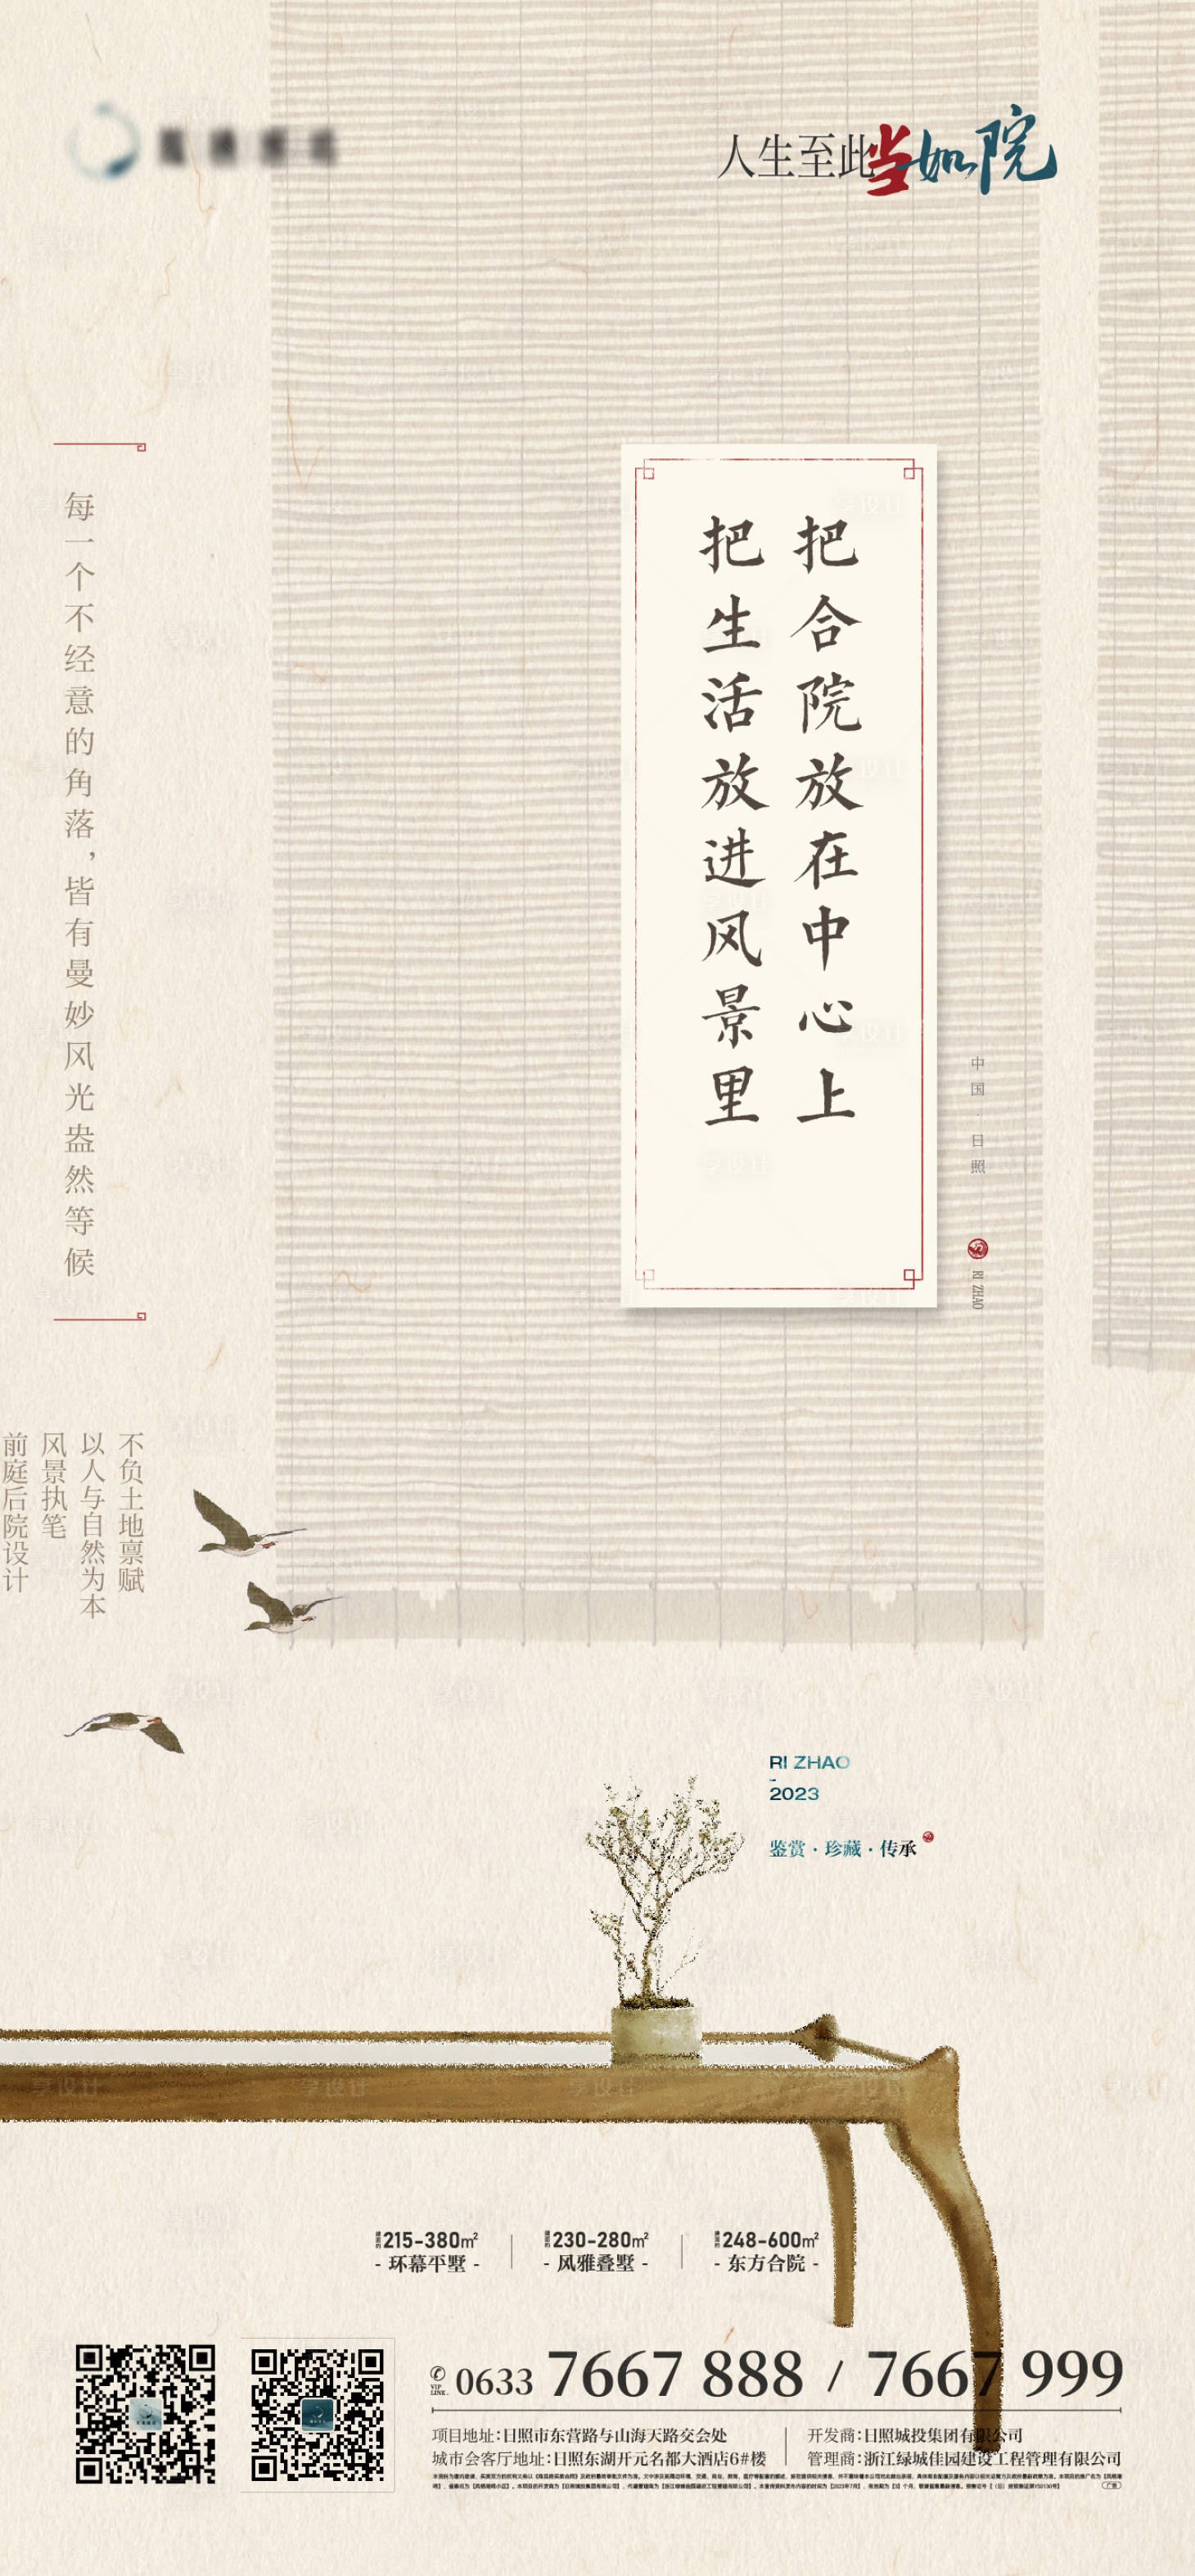 人生至此当如院
把合院放在中心上
把生活放进风景里
每一个不经意的角落，皆有曼妙风光盎然等候
中国·日照
RI ZHAO
不负土地禀赋
以人与自然为本
风景执笔
前庭后院设计
RI ZHAO
-
2023
鉴赏·珍藏·传承
215-380m²
- 环幕平墅 -
230-280m²
- 风雅叠墅 -
248-600m²
- 东方合院 -
VIP LINE. 0633 7667 888 / 7667 999
项目地址:日照市东营路与山海天路交会处
城市会客厅地址:日照东湖开元名都大酒店6#楼
开发商:日照城投集团有限公司
管理商:浙江绿城佳园建设工程管理有限公司